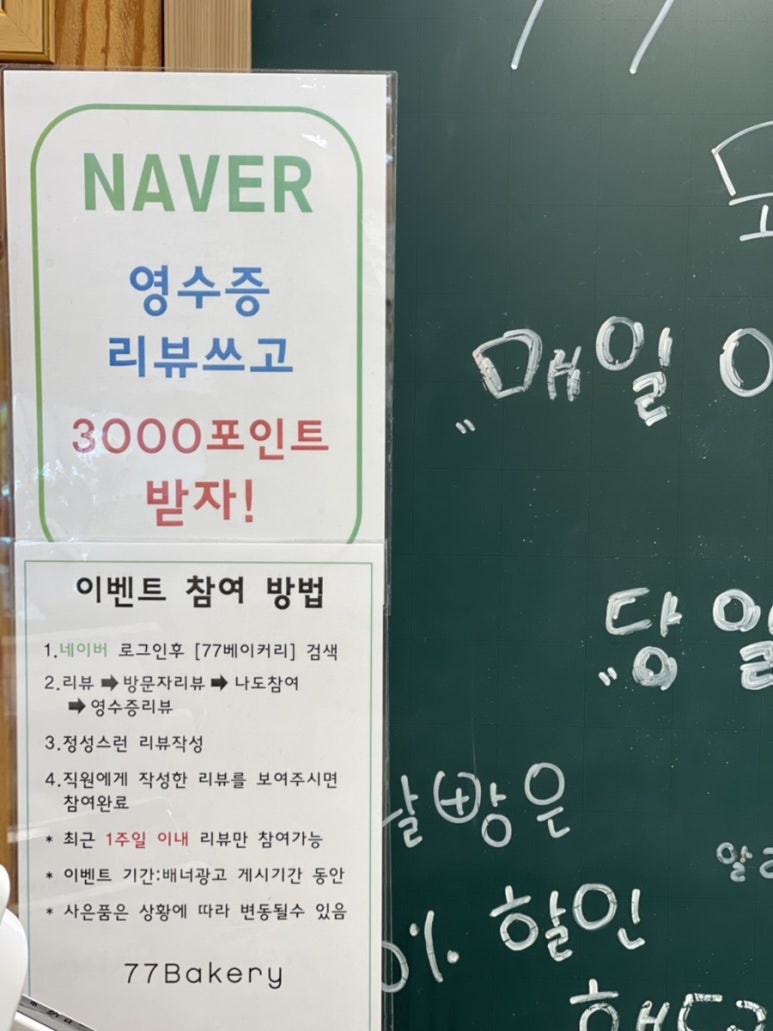 NAVER
영수증
리뷰쓰고
3000포인트
받자!
이벤트 참여 방법
1.네이버 로그인후 [77베이커리] 검색
2.리뷰 ➡ 방문자리뷰 ➡ 나도참여
➡ 영수증리뷰
3.정성스런 리뷰작성
4.직원에게 작성한 리뷰를 보여주시면
참여완료
* 최근 1주일 이내 리뷰만 참여가능
* 이벤트 기간:배너광고 게시기간 동안
* 사은품은 상황에 따라 변동될수 있음
77Bakery
매일
당일
할인